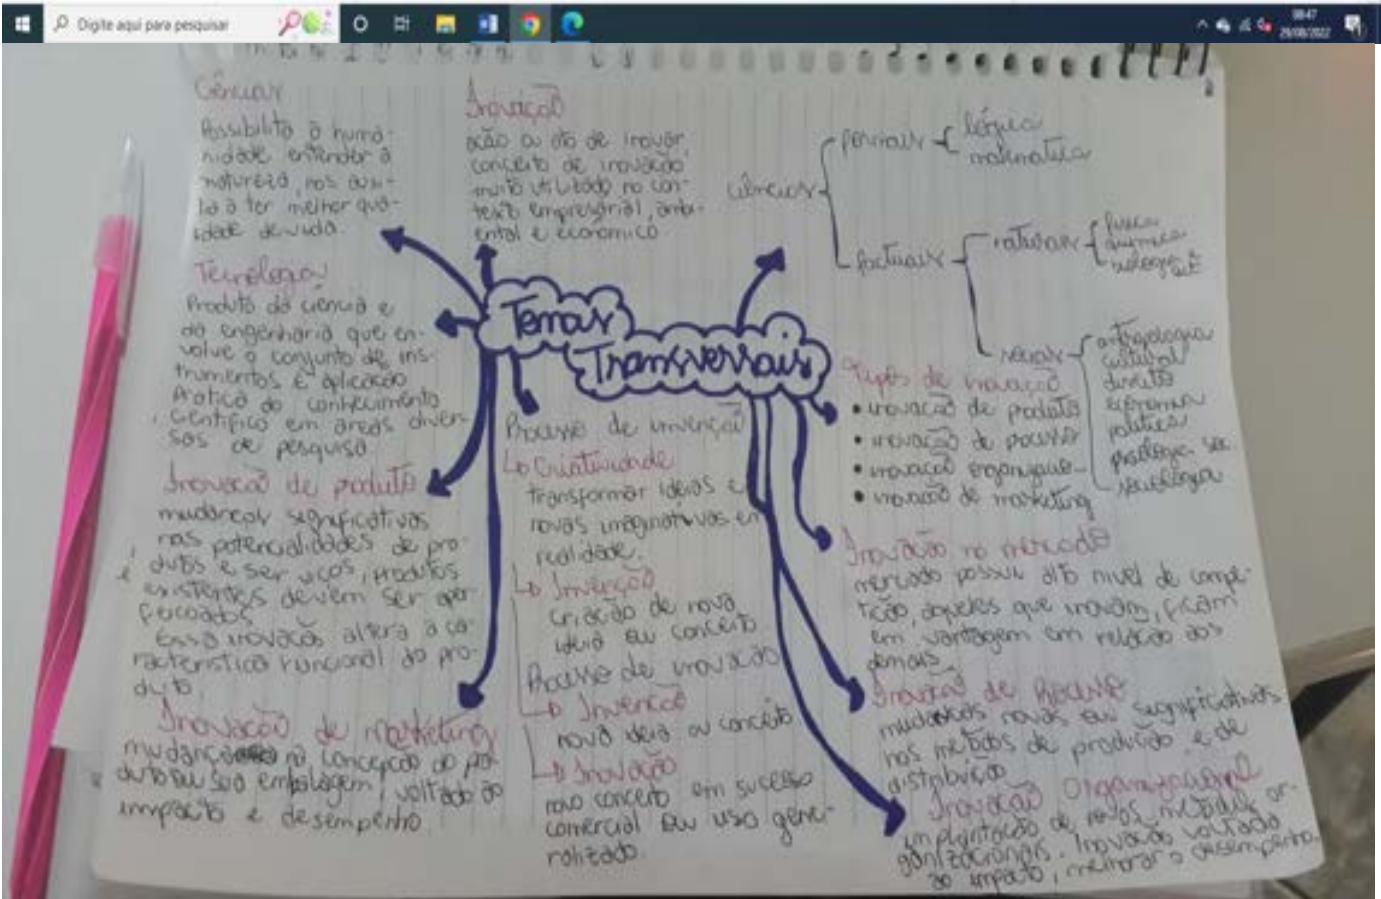 Digite aqui para pesquisar
08:47
29/08/2022
Ciências
Possibilita a huma-
nidade entender a
natureza, nos auxi-
lia a ter melhor qua-
lidade de vida.
Tecnologia
Produto da ciência e
da engenharia que en-
volve o conjunto de ins-
trumentos e aplicação
Prática do conhecimento
científico em áreas diver-
sas de pesquisa.
Inovação de produto
mudanças significativas
nas potencialidades de pro-
dutos e serviços, produtos
existentes devem ser aper-
feiçoados
Essa inovação altera a ca-
racterística funcional do pro-
duto.
Inovação de marketing
mudança na concepção do pro-
duto ou sua embalagem, voltado ao
impacto e desempenho.
Inovação
ação ou ato de inovar,
conceito de inovação
muito utilizado no con-
texto empresarial, ambi-
ental e econômico
Temas
Transversais
Processo de invenção
Criatividade
transformar ideias e
novas imaginativas em
realidade.
Invenção
criação de nova
ideia ou conceito
Processo de inovação
Invenção
nova ideia ou conceito
Inovação
novo conceito em sucesso
comercial ou uso gene-
ralizado.
ciências
formais
lógica
matemática
factuais
naturais
física
química
biologia
sociais
antropologia
cultural
direito
economia
política
psicologia soc.
sociologia
Tipos de inovação
• inovação de produto
• inovação de processo
• inovação
• inovação de marketing
Inovação no mercado
mercado possui alto nível de compe-
tição, aqueles que inovam, ficam
em vantagem em relação aos
demais.
Inovação de Processo
mudanças novas ou significativas
nos métodos de produção e de
distribuição
Inovação Organizacional
implantação de novos métodos or-
ganizacionais. Inovação voltada
ao impacto, melhorar o desempenho.